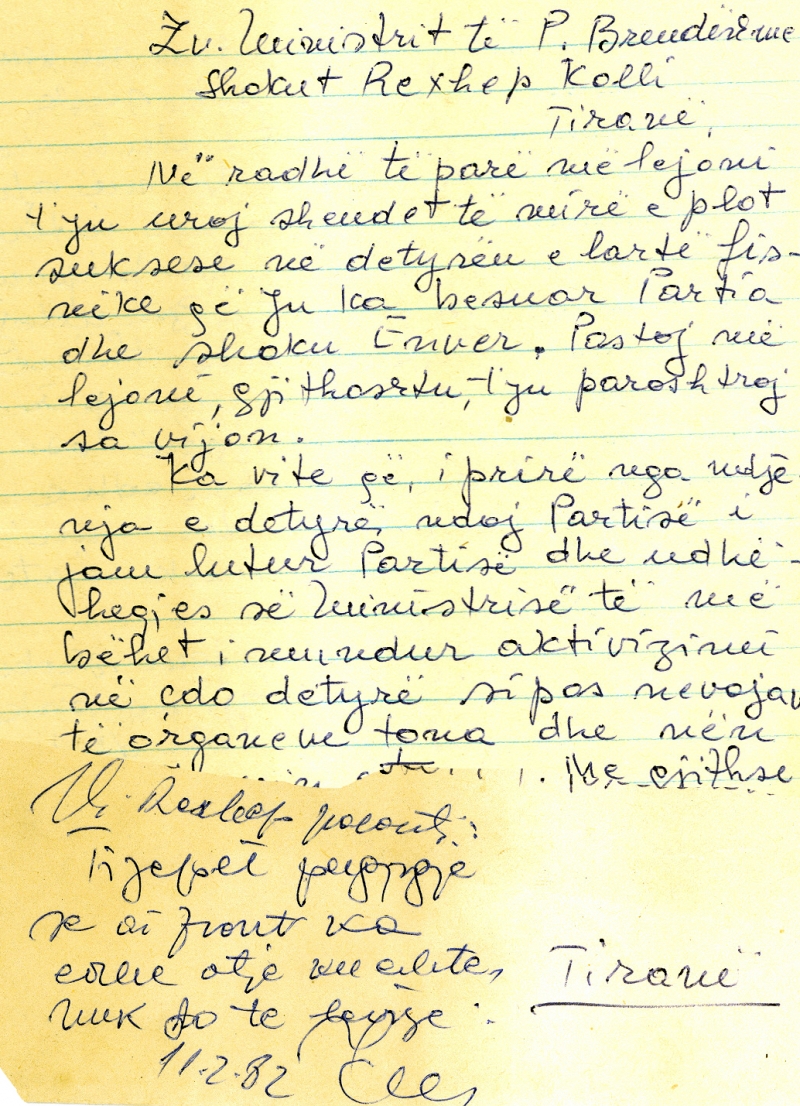 Zv. Ministrit të P. Brendëshme
Shokut Rexhep Kolli
Tiranë,
Në radhë të parë më lejoni
t'ju uroj shëndet të mirë e plot
suksese në detyrën e lartë fis-
nike që Ju ka besuar Partia
dhe shoku Enver. Pastaj më
lejoni, gjithashtu, t'ju parashtroj
sa vijon.
Ka vite që, i prirë nga ndje-
nja e detyrës ndaj Partisë i
jam lutur Partisë dhe udhë-
heqjes së Ministrisë të më
bëhet i mundur aktivizimi
në çdo detyrë sipas nevojave
të organeve tona dhe nën
Me gjithse
Rexhep
Ti jepet përgjigje
se ai front ka
edhe atje ku eshte,
nuk do te levize.
11.2.82
Tiranë